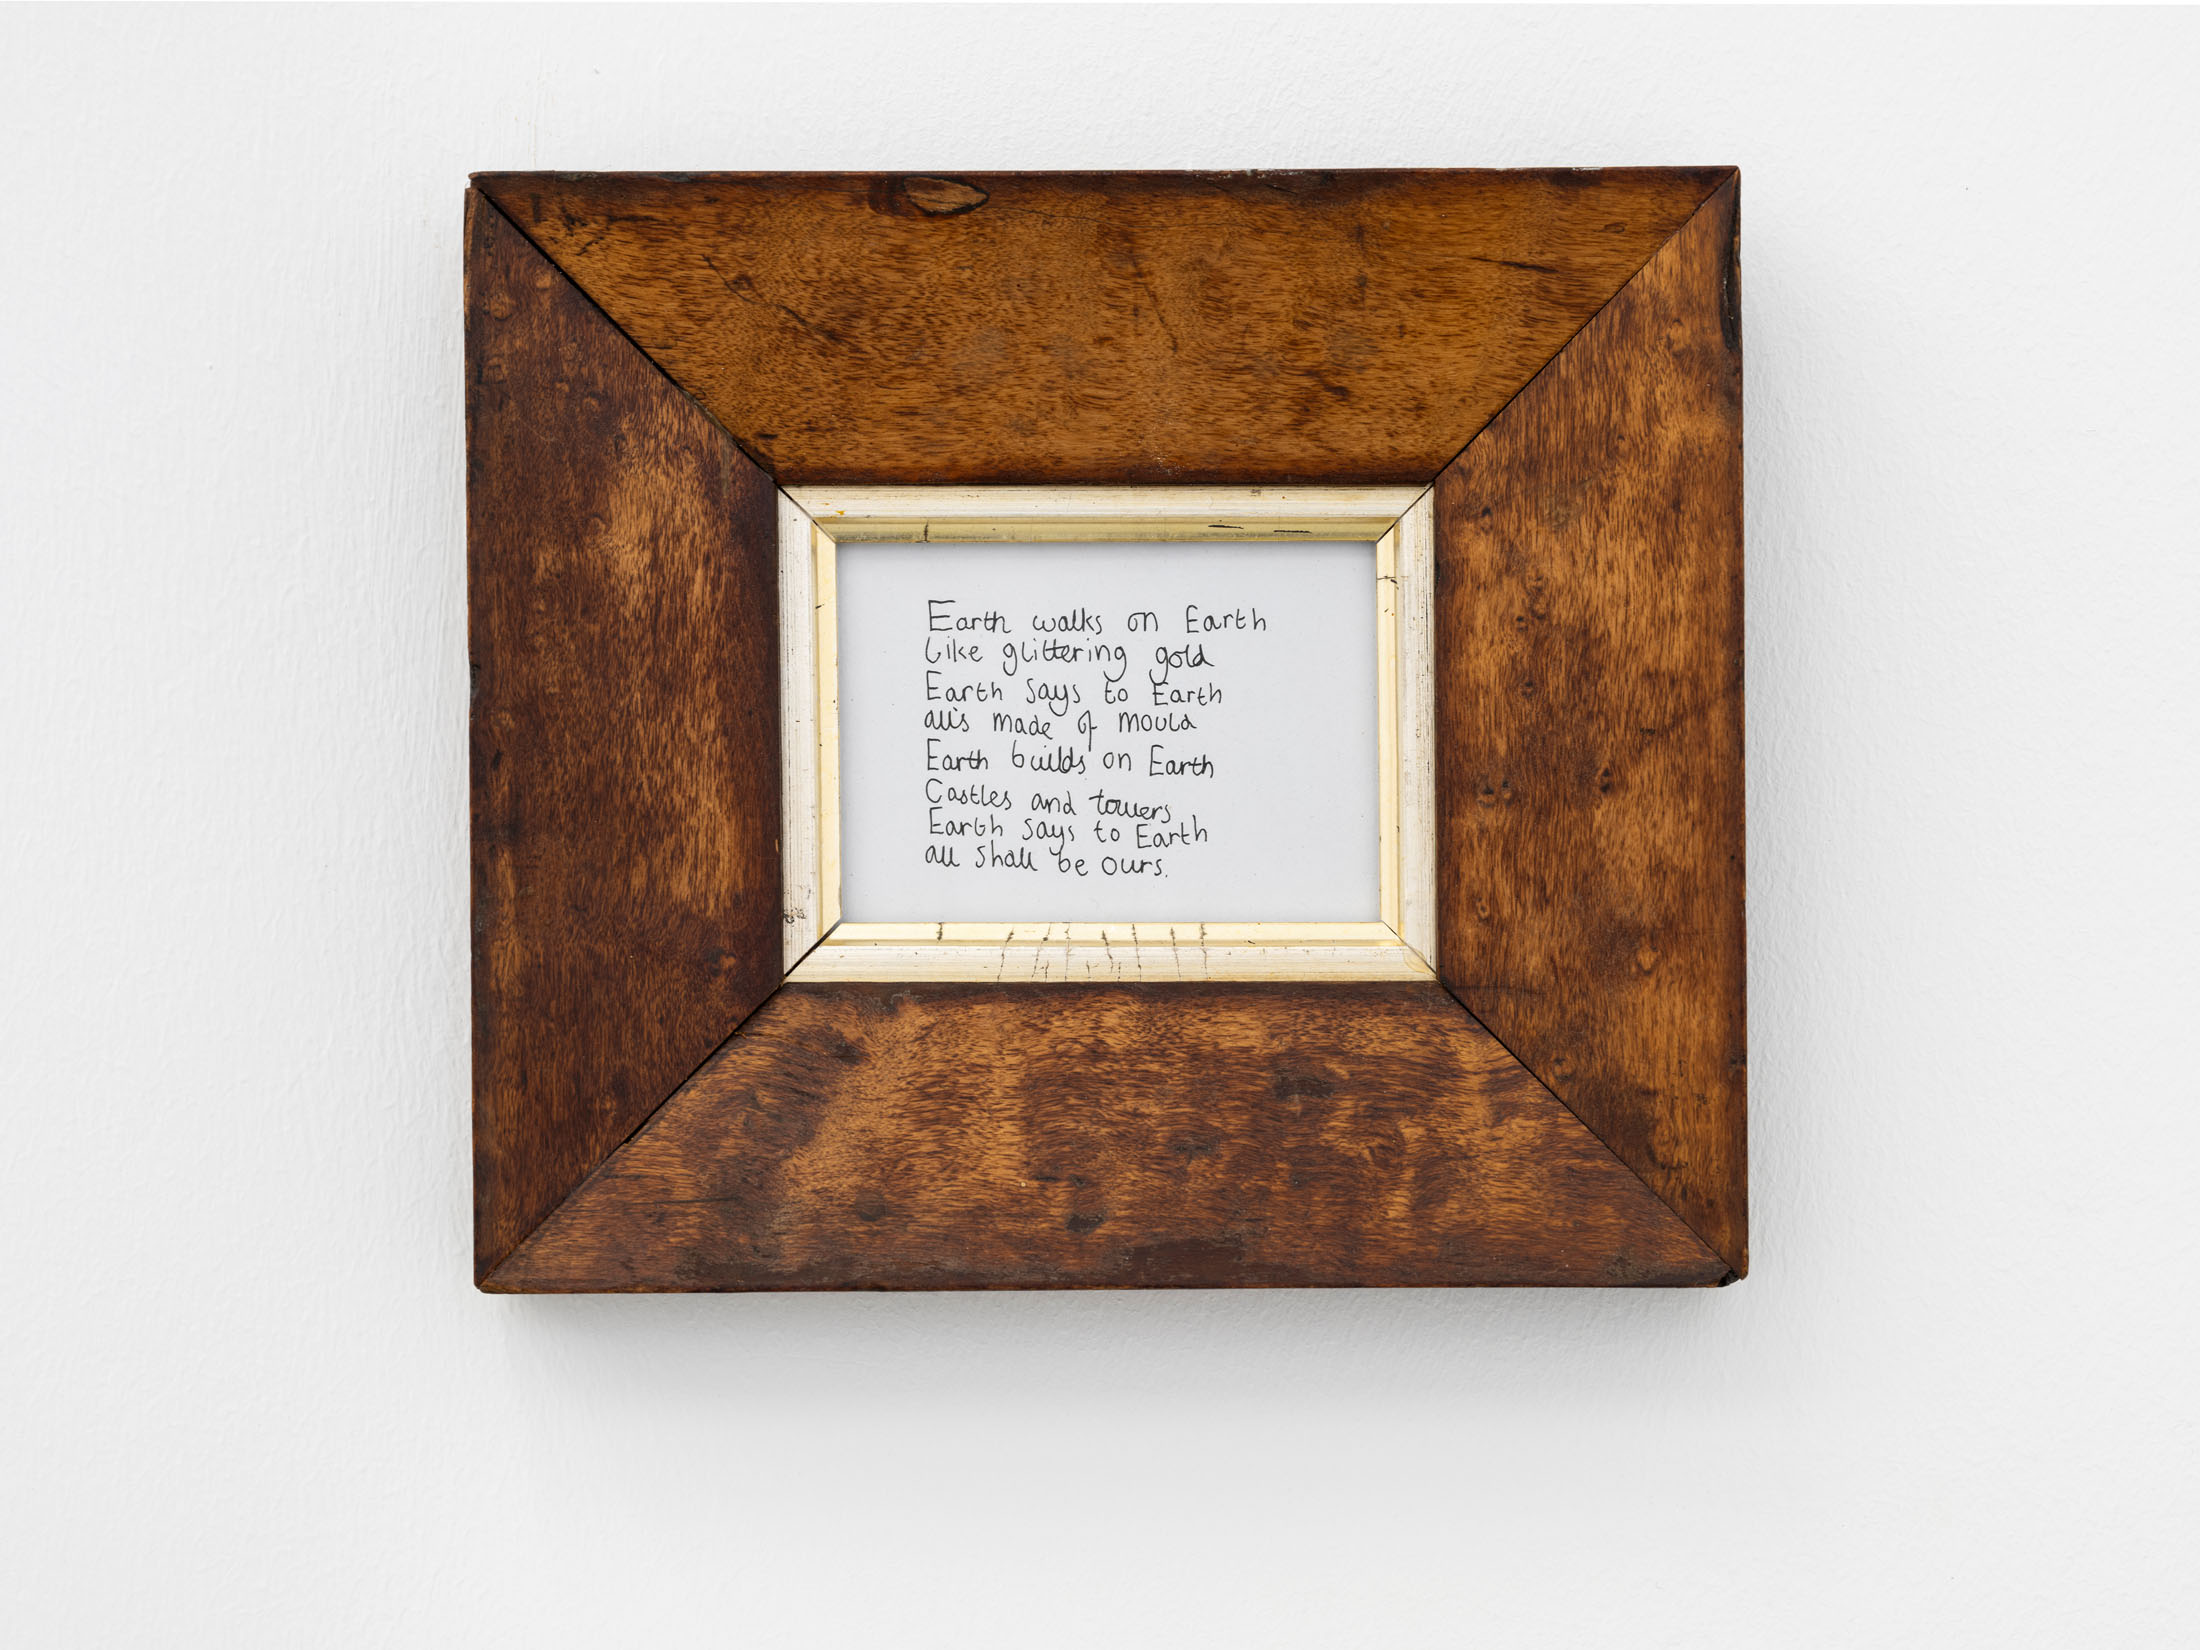 Earth walks on Earth
like glittering gold
Earth says to Earth
all's made of mould
Earth builds on Earth
Castles and towers
Earth says to Earth
all shall be ours.